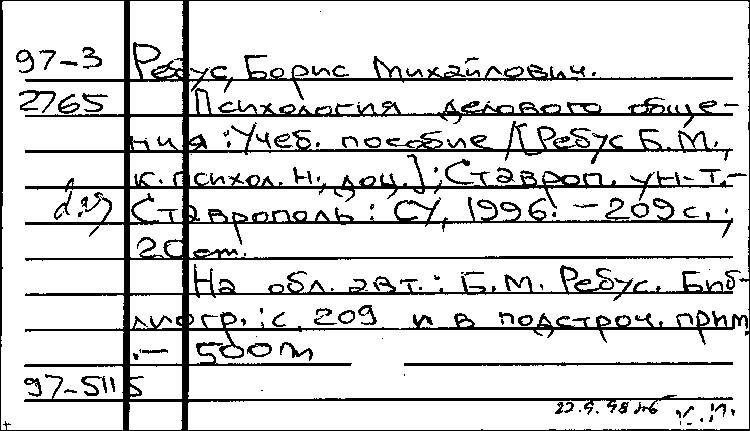 97-3 Ребус, Борис Михайлович.
2765 Психология делового обще-
ния : Учеб. пособие / [Ребус Б. М.,
к. психол. н., доц.] ; Ставроп. ун-т. -
Ставрополь : СУ, 1996. - 209 с. ;
20 cm.
На обл. авт. : Б. М. Ребус. Биб-
лиогр. : с. 209 и в подстроч. прим.
. - 500
97-5115
22.9.98